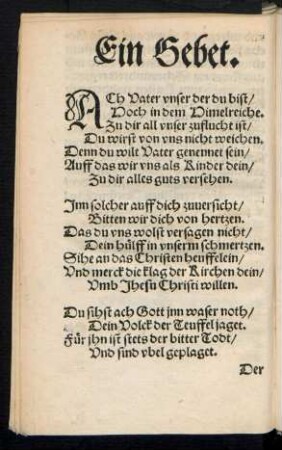 Ein Gebet.
ACh Vater vnser der du bist/
Hoch in dem Himelreiche.
Zu dir all vnser zuflucht ist/
Du wirst von vns nicht weichen.
Denn du wilt Vater genennet sein/
Auff das wir vns als Kinder dein/
Zu dir alles guts versehen.
Inn solcher auff dich zuuersicht/
Bitten wir dich von hertzen.
Das du vns wolst versagen nicht/
Dein hülff in vnserm schmertzen.
Sihe an das Christen heuffelein/
Vnd merck die klag der Kirchen dein/
Vmb Jhesu Christi willen.
Du sihst ach Gott jnn waser noth/
Dein Volck der Teuffel jaget.
Für jhn ist stets der bitter Todt/
Vnd sind vbel geplaget.
Der